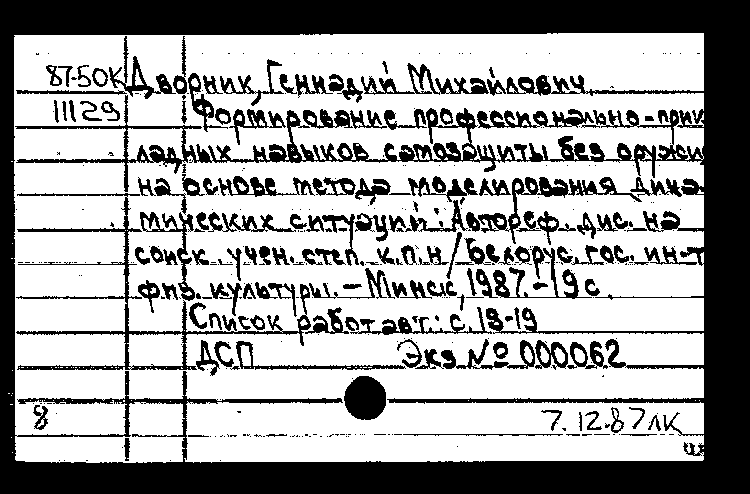 87-50К Дворник, Геннадий Михайлович.
11129 Формирование профессионально-прик
ладных навыков самозащиты без оружи
на основе метода моделирования дина
мических ситуаций: Автореф. дис. на
соиск. учен. степ. к.п.н / Белорус. гос. ин-т
физ. культуры. – Минск, 1987. – 19 с.
Список работ авт.: с. 18-19
ДСП Экз № 000062
8 7.12.87 ЛК